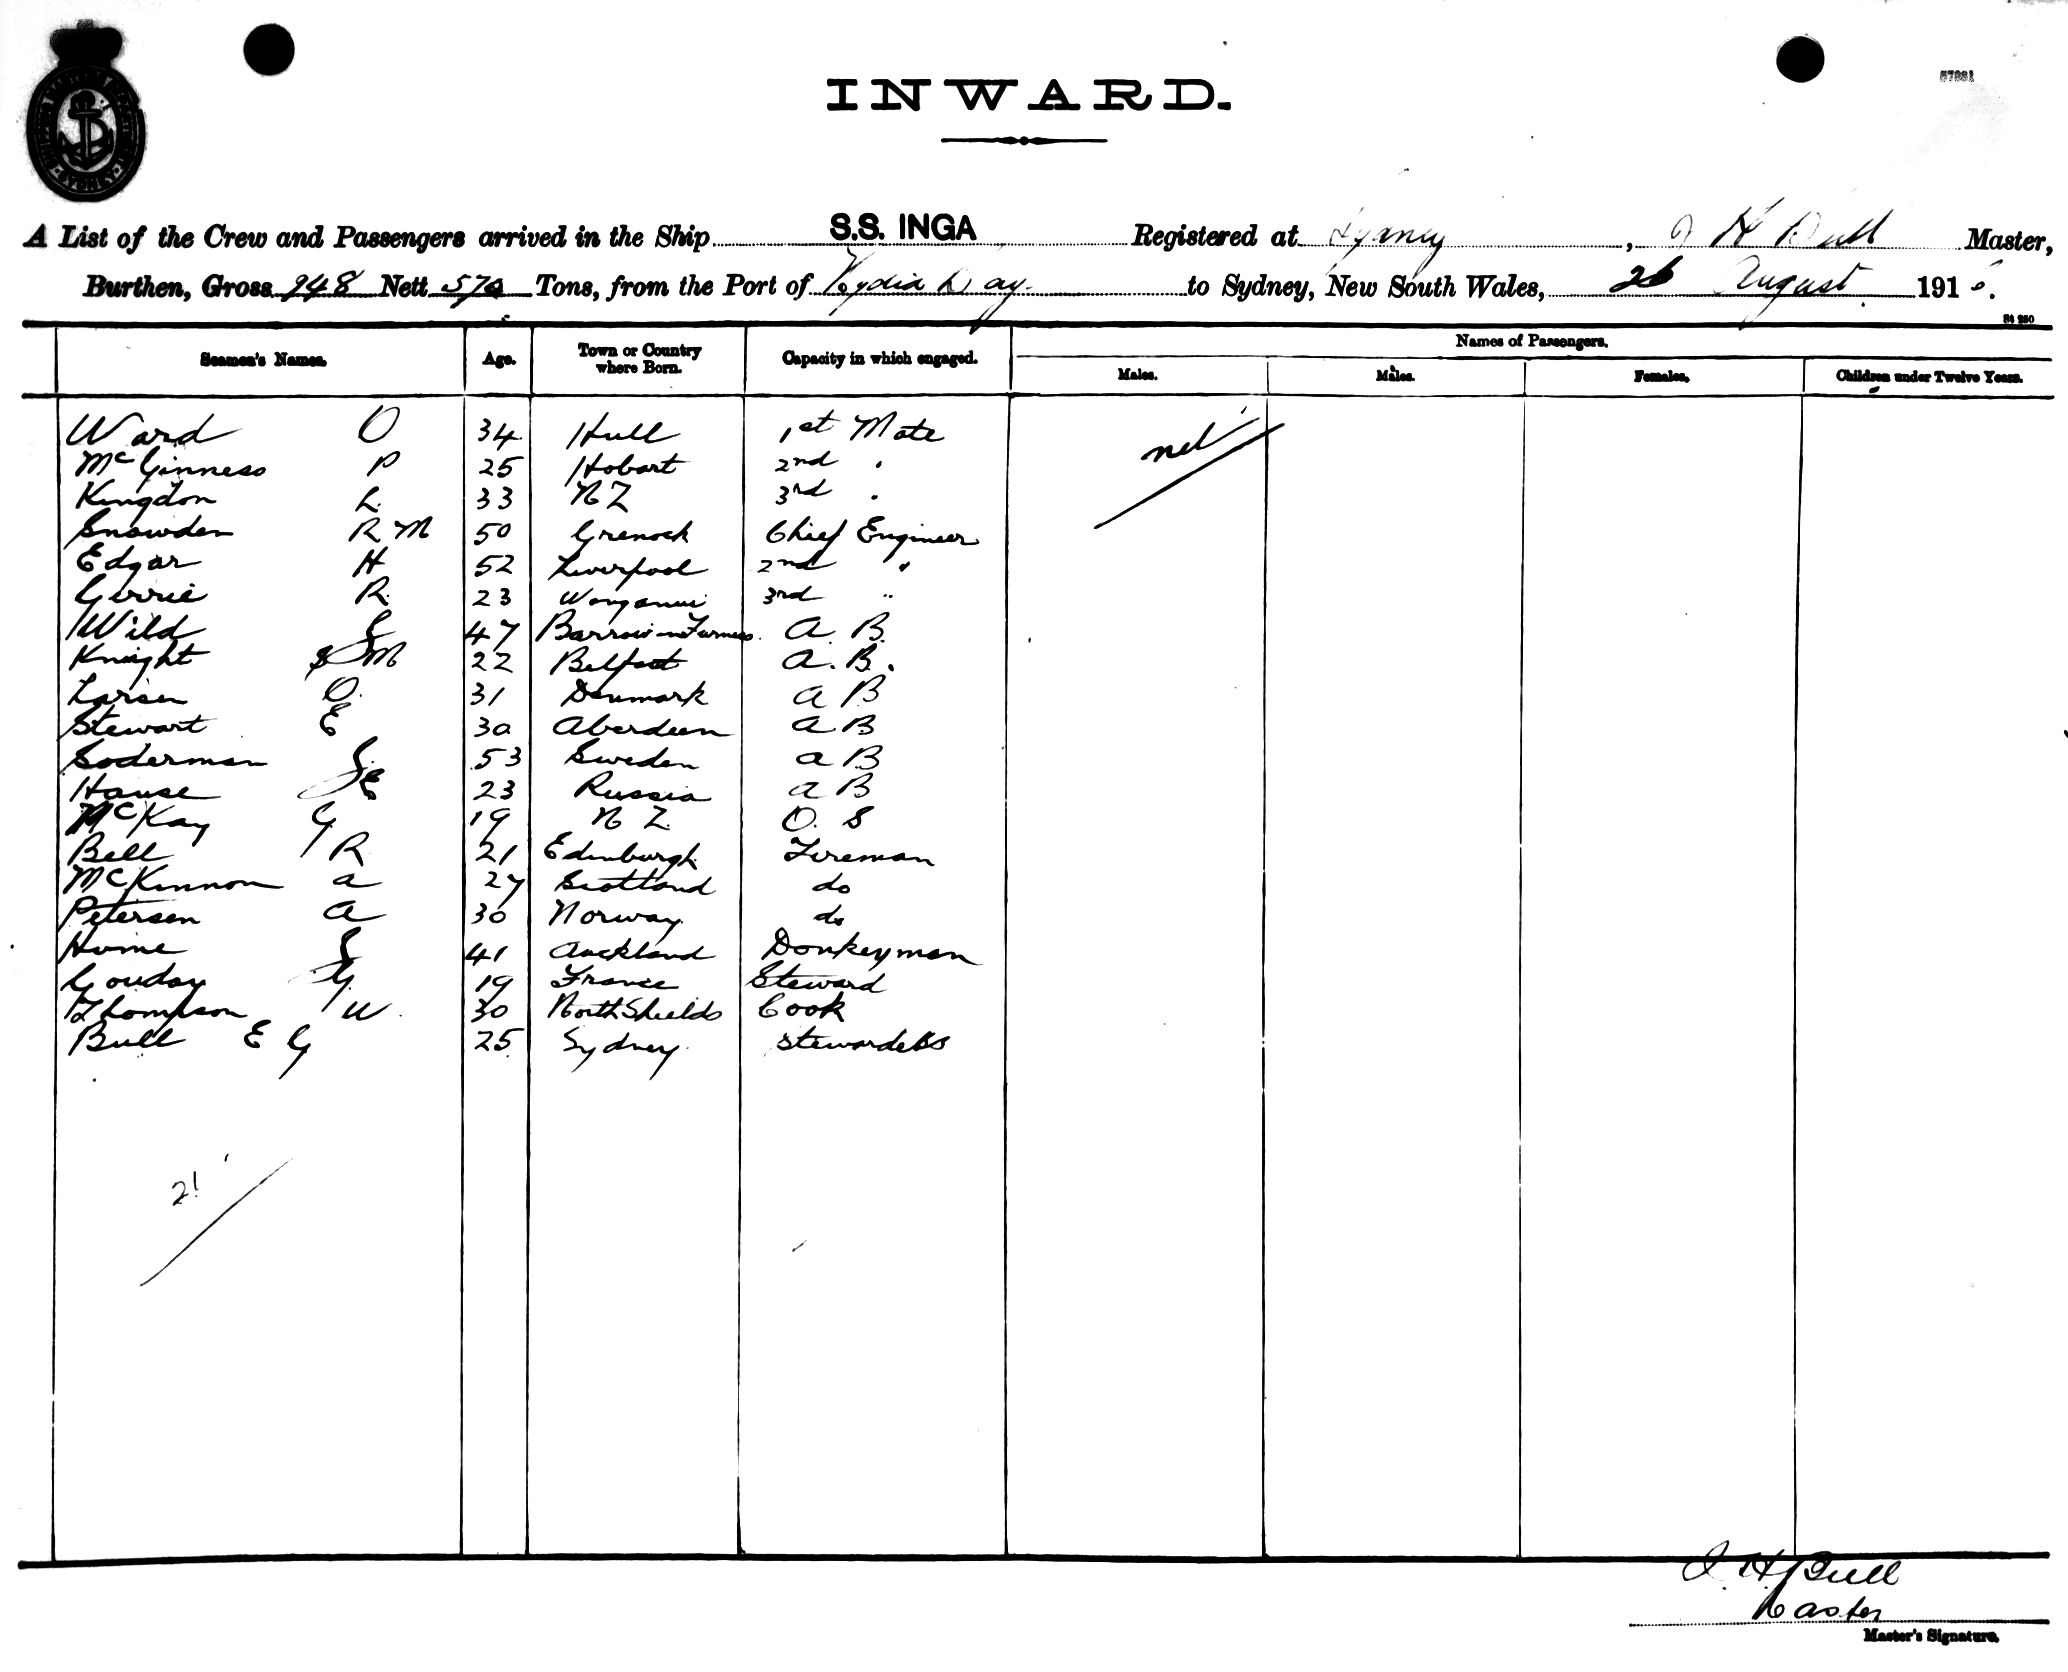 57981
INWARD.
A List of the Crew and Passengers arrived in the Ship S.S. INGA Registered at Sydney, J H Bull Master,
Burthen, Gross 948 Nett 570 Tons, from the Port of to Sydney, New South Wales, 26 August 1916.
Seamen's Names. Age. Town or Country where Born. Capacity in which engaged. Names of Passengers.
Males. Males. Females. Children under Twelve Years.
Ward O 34 Hull 1st Mate nil
McGinness P 25 Hobart 2nd "
Kingdon L 33 NZ 3rd "
Snowden R M 50 Grenock Chief Engineer
Edgar H 52 Liverpool 2nd "
Gerrie R 23 Wanganui 3rd "
Wild J 47 Barrow in Furness A. B.
Knight J M 22 Belfast A. B.
Larsen O. 31 Denmark A B
Stewart E 30 Aberdeen A B
Soderman J 53 Sweden A B
Hause E 23 Russia A B
McKay G 19 N Z. O. S
Bell R 21 Edinburgh Fireman
McKinnon A 27 Scotland do
Petersen A 30 Norway do
Hume J 41 Auckland Donkeyman
Gouday G. 19 France Steward
Thompson W. 30 North Shields Cook
Bull E G 25 Sydney Stewardess
21
J. H. Bull
Master
Master's Signature.